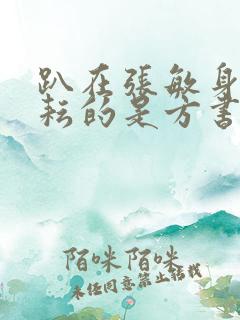 趴在張敏身
耘的是方書
陌咪陌咪
未任同意禁止轉載